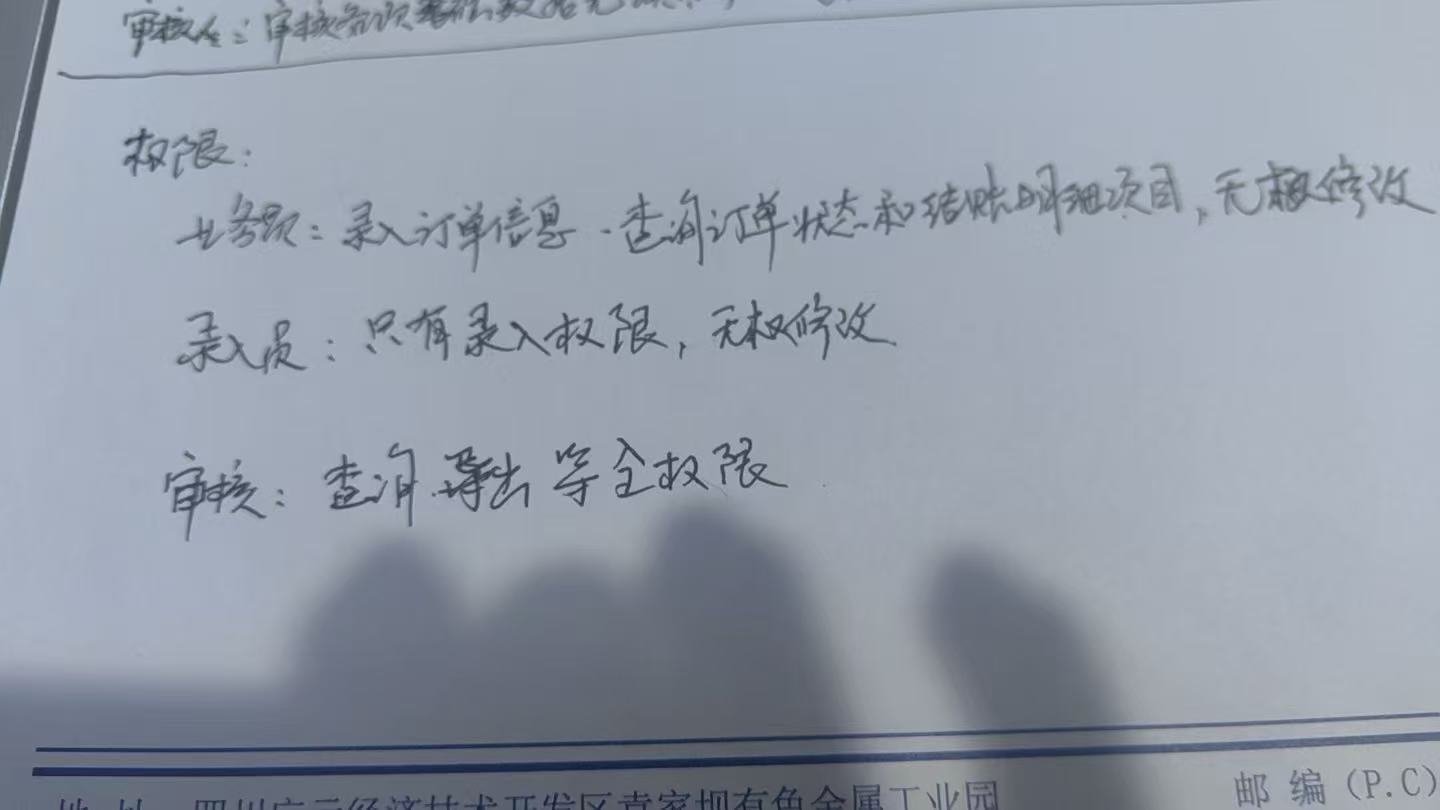 审核人:审核各项基础数据无误
权限:
业务员:录入订单信息、查询订单状态和结账明细项目,无权修改
录入员:只有录入权限,无权修改.
审核:查询、导出等全权限
地 址 四川广元经济技术开发区袁家坝有色金属工业园
邮 编 (P.C)